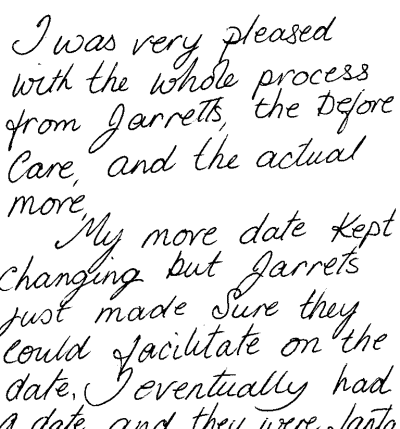 I was very pleased
with the whole process
from Jarretts, the Before
Care, and the actual
more,
My more date kept
changing but Jarrets
just made sure they
could facilitate on the
date. I eventually had
a date and they were